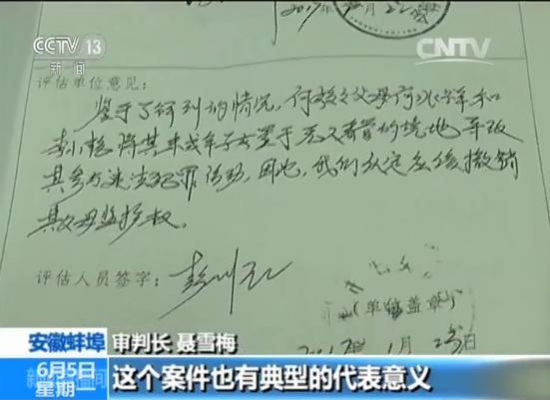 CCTV 13
新闻
CNTV
2017年 月22
评估单位意见:
鉴于了解到的情况,何 之父母何 和
李 将其未成年子女置于无人看管的境地导致
其参与违法犯罪活动,因此,我们认定应该撤销
其父母监护权。
评估人员签字:
(单位盖章)
月 日
安徽蚌埠 审判长 聂雪梅
6月5日
星期一
这个案件也有典型的代表意义